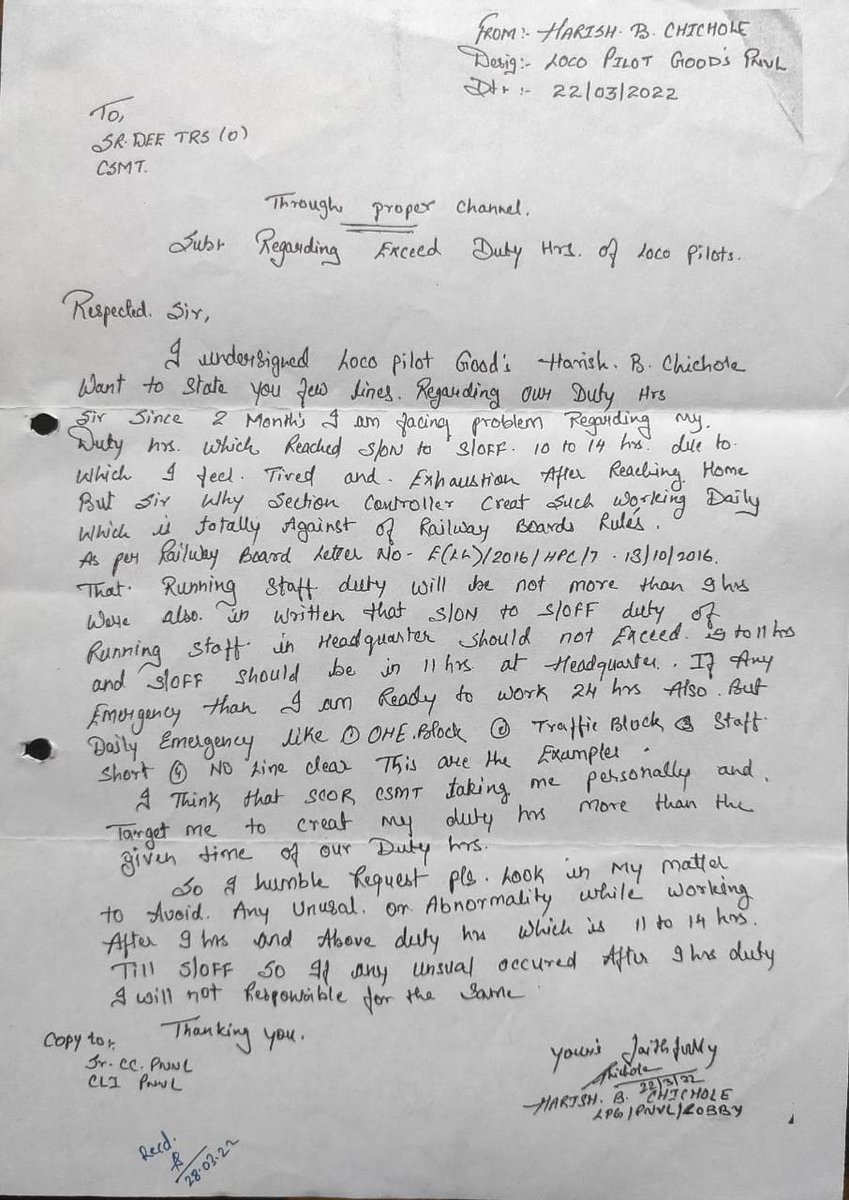 FROM:- HARISH. B. CHICHOLE
Desig:- LOCO PILOT GOOD'S PNVL
Dt :- 22/03/2022
To,
SR. DEE TRS (O)
CSMT.
Through proper channel.
Sub: Regarding Exceed Duty Hrs. of Loco Pilots.
Respected. Sir,
I undersigned Loco pilot Good's Harish. B. Chichole
Want to State you few lines. Regarding our Duty Hrs
Sir Since 2 Month's I am facing problem Regarding my.
Duty hrs. which Reached S/ON to S/OFF. 10 to 14 hrs. due to.
Which I feel. Tired and. Exhaustion After Reaching Home
But Sir Why Section Controller Creat Such Working Daily
Which is totally Against of Railway Boards Rules.
As per Railway Board Letter No- E(LL)/2016/HPC/7. 13/10/2016.
That. Running Staff duty will be not more than 9 hrs
Were also. in written that S/ON to S/OFF duty of
Running Staff in Headquarter should not Exceed. to 11 hrs
and S/OFF should be in 11 hrs at Headquarter. If Any
Emergency than I am Ready to work 24 hrs Also. But
Daily Emergency like ① OHE. Block ② Traffic Block ③ Staff
Short ④ NO Line clear This are the Examples.
I Think that SCOR CSMT taking me personally and.
Target me to creat my duty hrs more than the
given time of our Duty hrs.
So I humble Request pls. Look in My matter
to Avoid. Any Unusal. or Abnormality while working
After 9 hrs and Above duty hrs which is 11 to 14 hrs.
Till S/OFF So If any unsual occured After 9 hrs duty
I will not Responsible for the Same
Thanking you.
Copy to:
Sr. CC. PNVL
CLI PNVL
your's faithfully
Chichole
22/3/22
HARISH. B. CHICHOLE
LPG/PNVL/LOBBY
Recd.
28.03.22